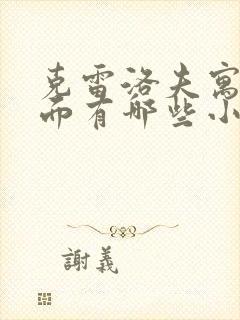 克雷洛夫寓
而有哪些小
謝義